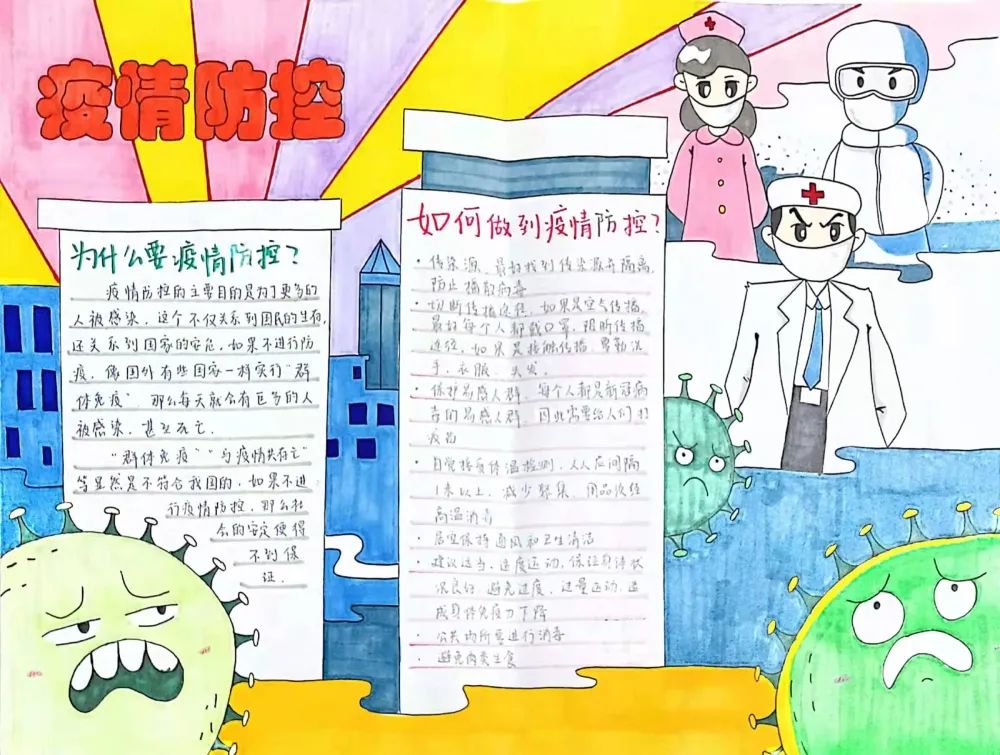 疫情防控
为什么要疫情防控?
疫情防控的主要目的是为了更多的
人被感染,这个不仅关系到国民的生存,
还关系到国家的安危,如果不进行防
疫,像国外有些国家一样实行“群
体免疫”,那么每天就会有巨多的人
被感染,甚至死亡.
“群体免疫”“与疫情共存亡”
等显然是不符合我国的,如果不进
行疫情防控,那么社
会的安定便得
不到保
证.
如何做到疫情防控?
·传染源,最好找到传染源并隔离,
防止播散病毒
·切断传播途径,如果是空气传播,
最好每个人都戴口罩,阻断传播
途径,如果是接触传播,要勤洗
手、衣服、头发.
·保护易感人群,每个人都是新冠病
毒的易感人群,因此需要给人们打
疫苗
·自觉接受体温检测,人人应间隔
1米以上,减少聚集,用品须经
高温消毒
·居室保持通风和卫生清洁
·建议适当、适度运动,保证身体状
况良好,避免过度、过量运动,造
成身体免疫力下降
·公共场所要进行消毒
·避免肉类生食